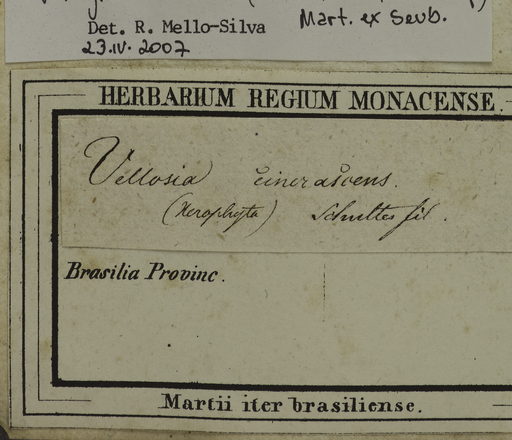 Mart. ex Seub.
Det. R. Mello-Silva
23.IV.2007
HERBARIUM REGIUM MONACENSE.
Vellosia cinerascens.
(Xerophyta) Schultes fil.
Brasilia Provinc.
Martii iter brasiliense.